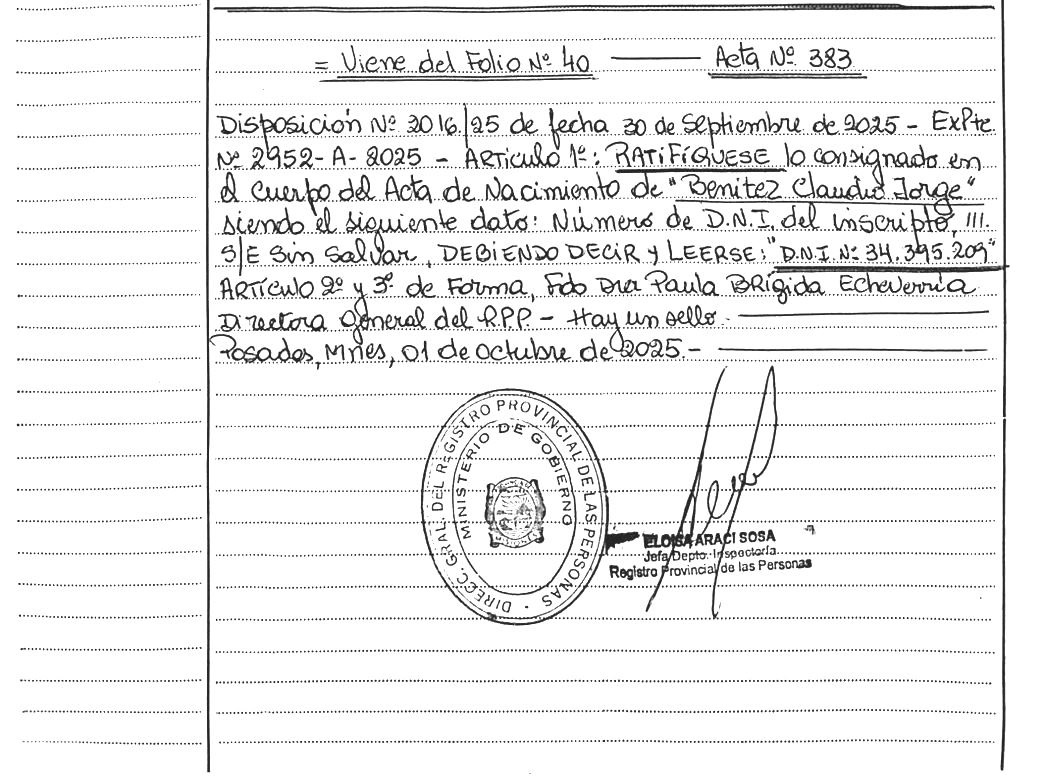 = Viene del Folio Nº 40 ——— Acta Nº 383
Disposición Nº 2016/25 de fecha 30 de Septiembre de 2025 - ExPte
Nº 2952-A-2025 - ARTICULO 1º: RATIFÍQUESE lo consignado en
el cuerpo del Acta de Nacimiento de "Benitez Claudio Jorge"
siendo el siguiente dato: Número de D.N.I. del inscripto, III.
S/E Sin Salvar, DEBIENDO DECIR y LEERSE: "D.N.I. Nº 34.395.209"
ARTÍCULO 2º y 3º de Forma, Fdo Dra Paula BRígida Echeverría
Directora General del R.P.P. - Hay un sello. ———
Posadas, Mnes, 01 de Octubre de 2025.- ———
DIRECC. GRAL. DEL REGISTRO PROVINCIAL DE LAS PERSONAS
MINISTERIO DE GOBIERNO
ELOISA ARACI SOSA
Jefa Depto. Inspectoría
Registro Provincial de las Personas